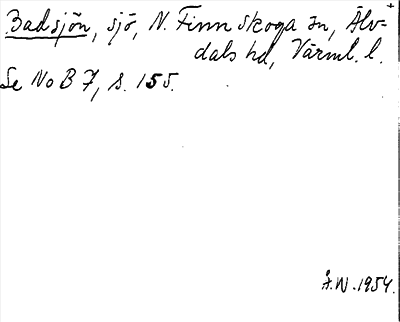 Badsjön, sjö, N. Finnskoga sn, Älv=
dals hd, Värml. l.
Se No B 7, s. 155.
J.W. 1954.